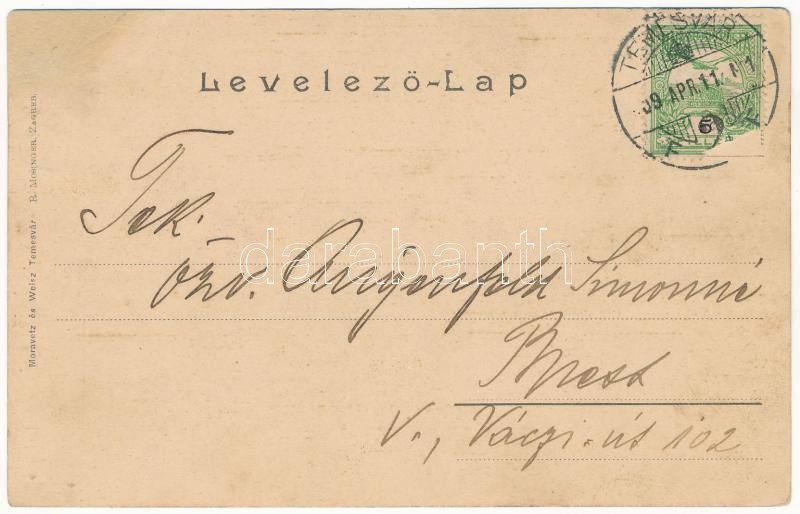 Levelező-Lap
TEMESVÁR
09 APR. 11.
Tek.
özv. Angenfeld Simonné
Bpest
V., Váczi-út 102
darabanth
Moravetz és Weisz Temesvár R. Mosinger, Zagreb.